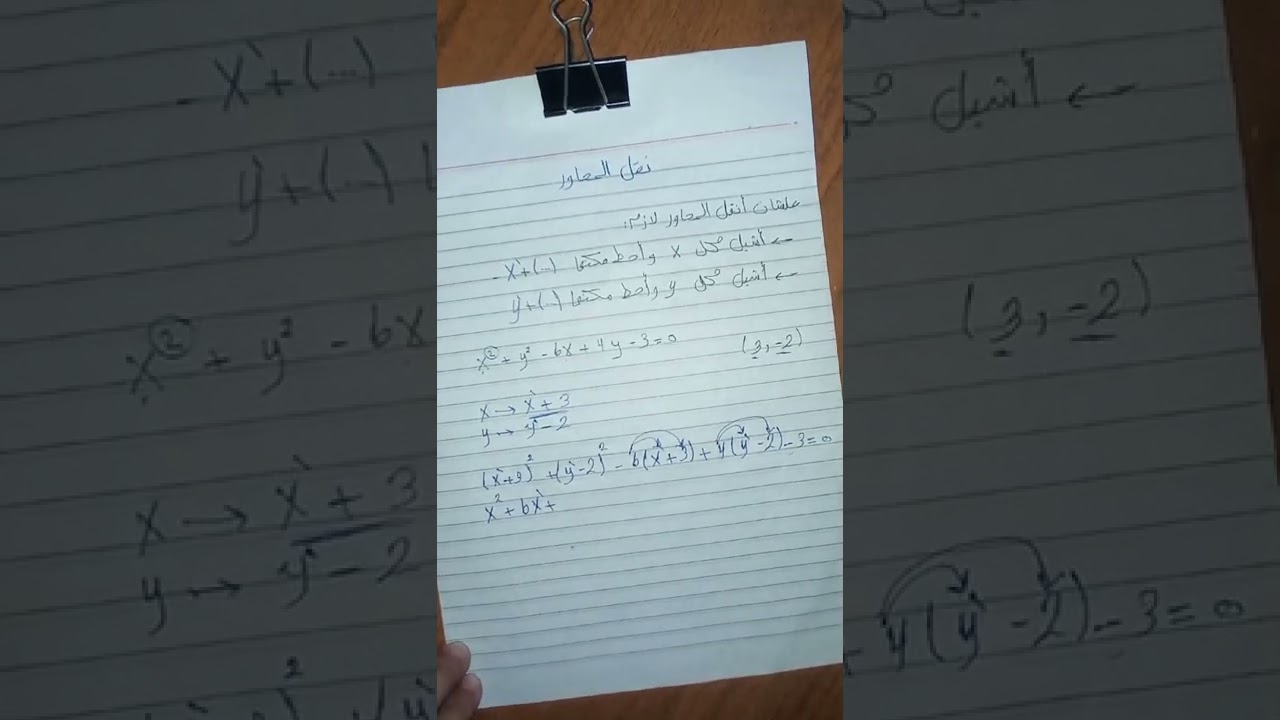 نقل المحاور
علشان أنقل المحاور لازم:
← أشيل كل x وأحط مكانها x̀+(...)
← أشيل كل y وأحط مكانها ỳ+(...)
x² + y² - 6x + 4y - 3 = 0 (3, -2)
x → x̀ + 3
y → ỳ - 2
(x̀+3)² + (ỳ-2)² - 6(x̀+3) + 4(ỳ-2) - 3 = 0
x̀² + 6x̀ +